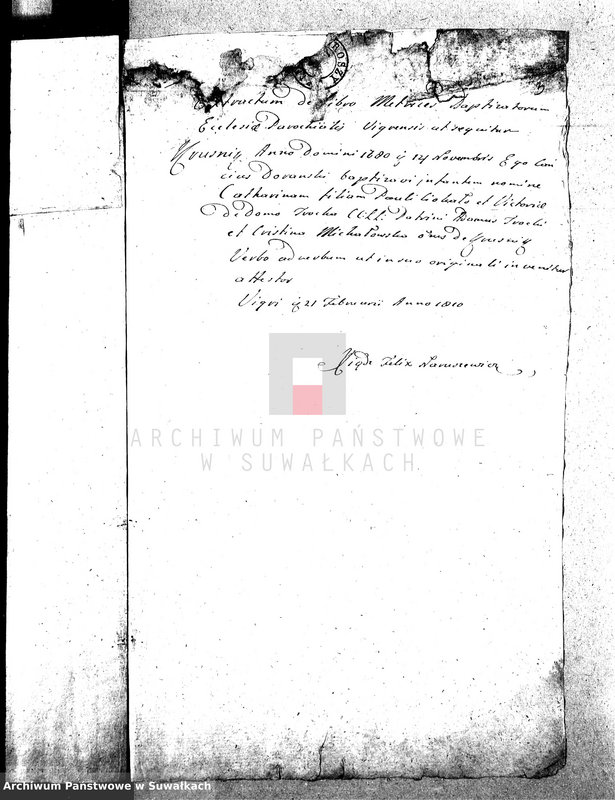 GROSZY
Extractum de Libro Metrices Baptizatorum
Ecclesiæ Parochialis Vigrensis ut sequitur
Krusnik Anno Domini 1680 14 Novembris Ego
Dovanski baptizavi infantem nomine
Catharinam filiam Pauli et Victorie
De Domo Trocka CLLL: Patrini Thomas Trocki
et Cristina Michałowska de Krusnik
Verbo ad verbum ut in suo originali invenitur
attestor
Vigri 21 Februarii Anno 1810
Felix Naruszewicz
ARCHIWUM PAŃSTWOWE
W SUWAŁKACH
Archiwum Państwowe w Suwałkach